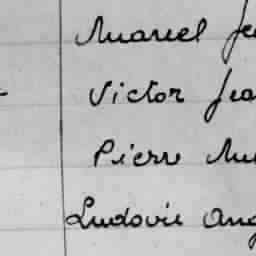 Marcel Je
Victor Jea
Pierre Au
Ludovic Aug